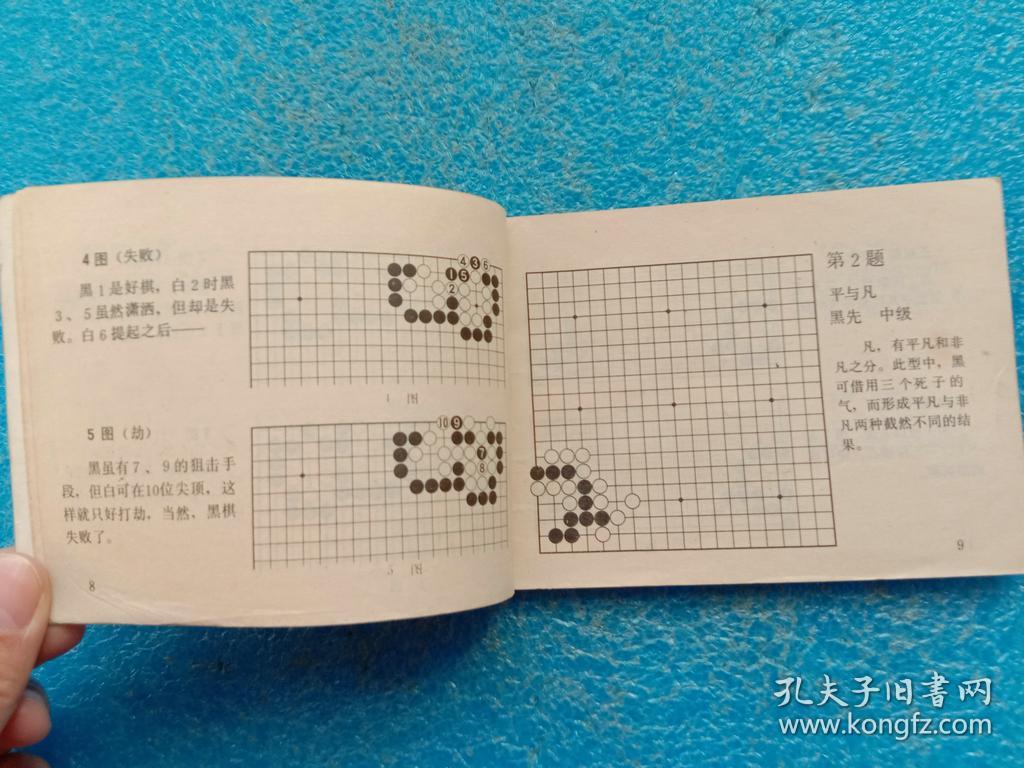 4图(失败)
黑1是好棋，白2时黑
3、5虽然潇洒，但却是失
败。白6提起之后——
4 3 6
1 5
2
图
5图(劫)
黑虽有7、9的狙击手
段，但白可在10位尖顶，这
样就只好打劫，当然、黑棋
失败了。
10 9
7
8
图
8
第2题
平与凡
黑先 中级
凡，有平凡和非
凡之分。此型中，黑
可借用三个死子的
气，而形成平凡与非
凡两种截然不同的结
果。
9
孔夫子旧书网
www.kongfz.com